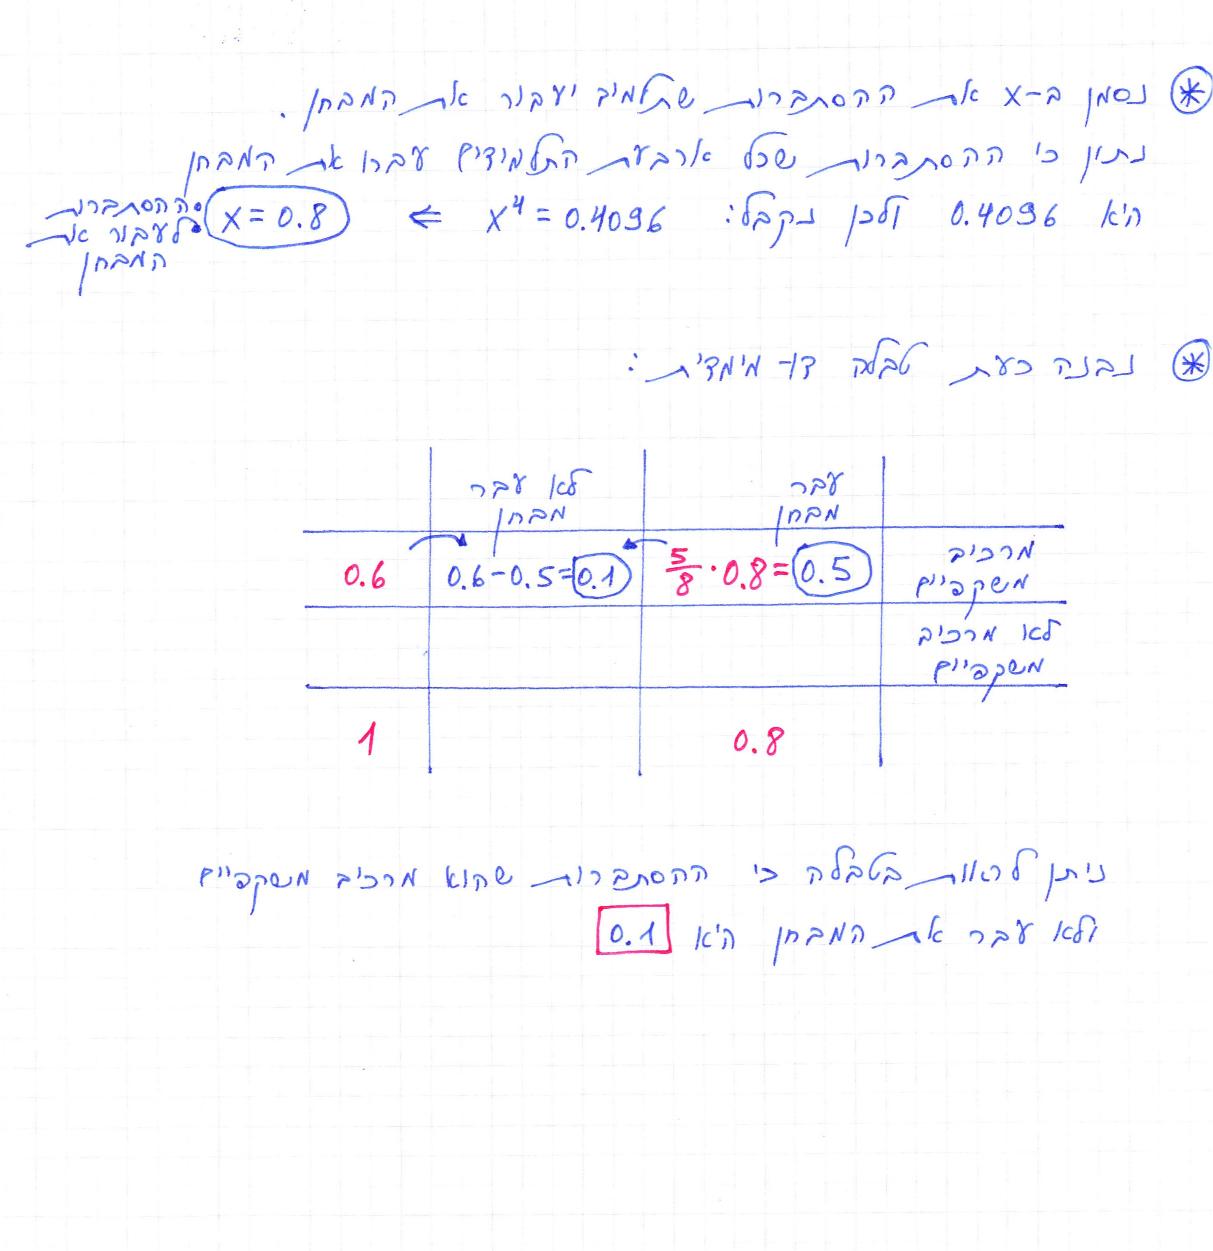 ⊛ נסמן ב-x את ההסתברות שתלמיד יעבור את המבחן.
נתון כי ההסתברות שכל ארבעת התלמידים עברו את המבחן
היא 0.4096 ולכן נקבל: x⁴ = 0.4096 ⇐ x = 0.8
ההסתברות
לעבור את
המבחן
⊛ נבנה כעת טבלה דו-מימדית:
עבר
מבחן
לא עבר
מבחן
מרכיב
משקפיים
5/8 · 0.8 = 0.5
0.6-0.5=0.1
0.6
לא מרכיב
משקפיים
0.8
1
ניתן לראות בטבלה כי ההסתברות שהוא מרכיב משקפיים
ולא עבר את המבחן היא 0.1